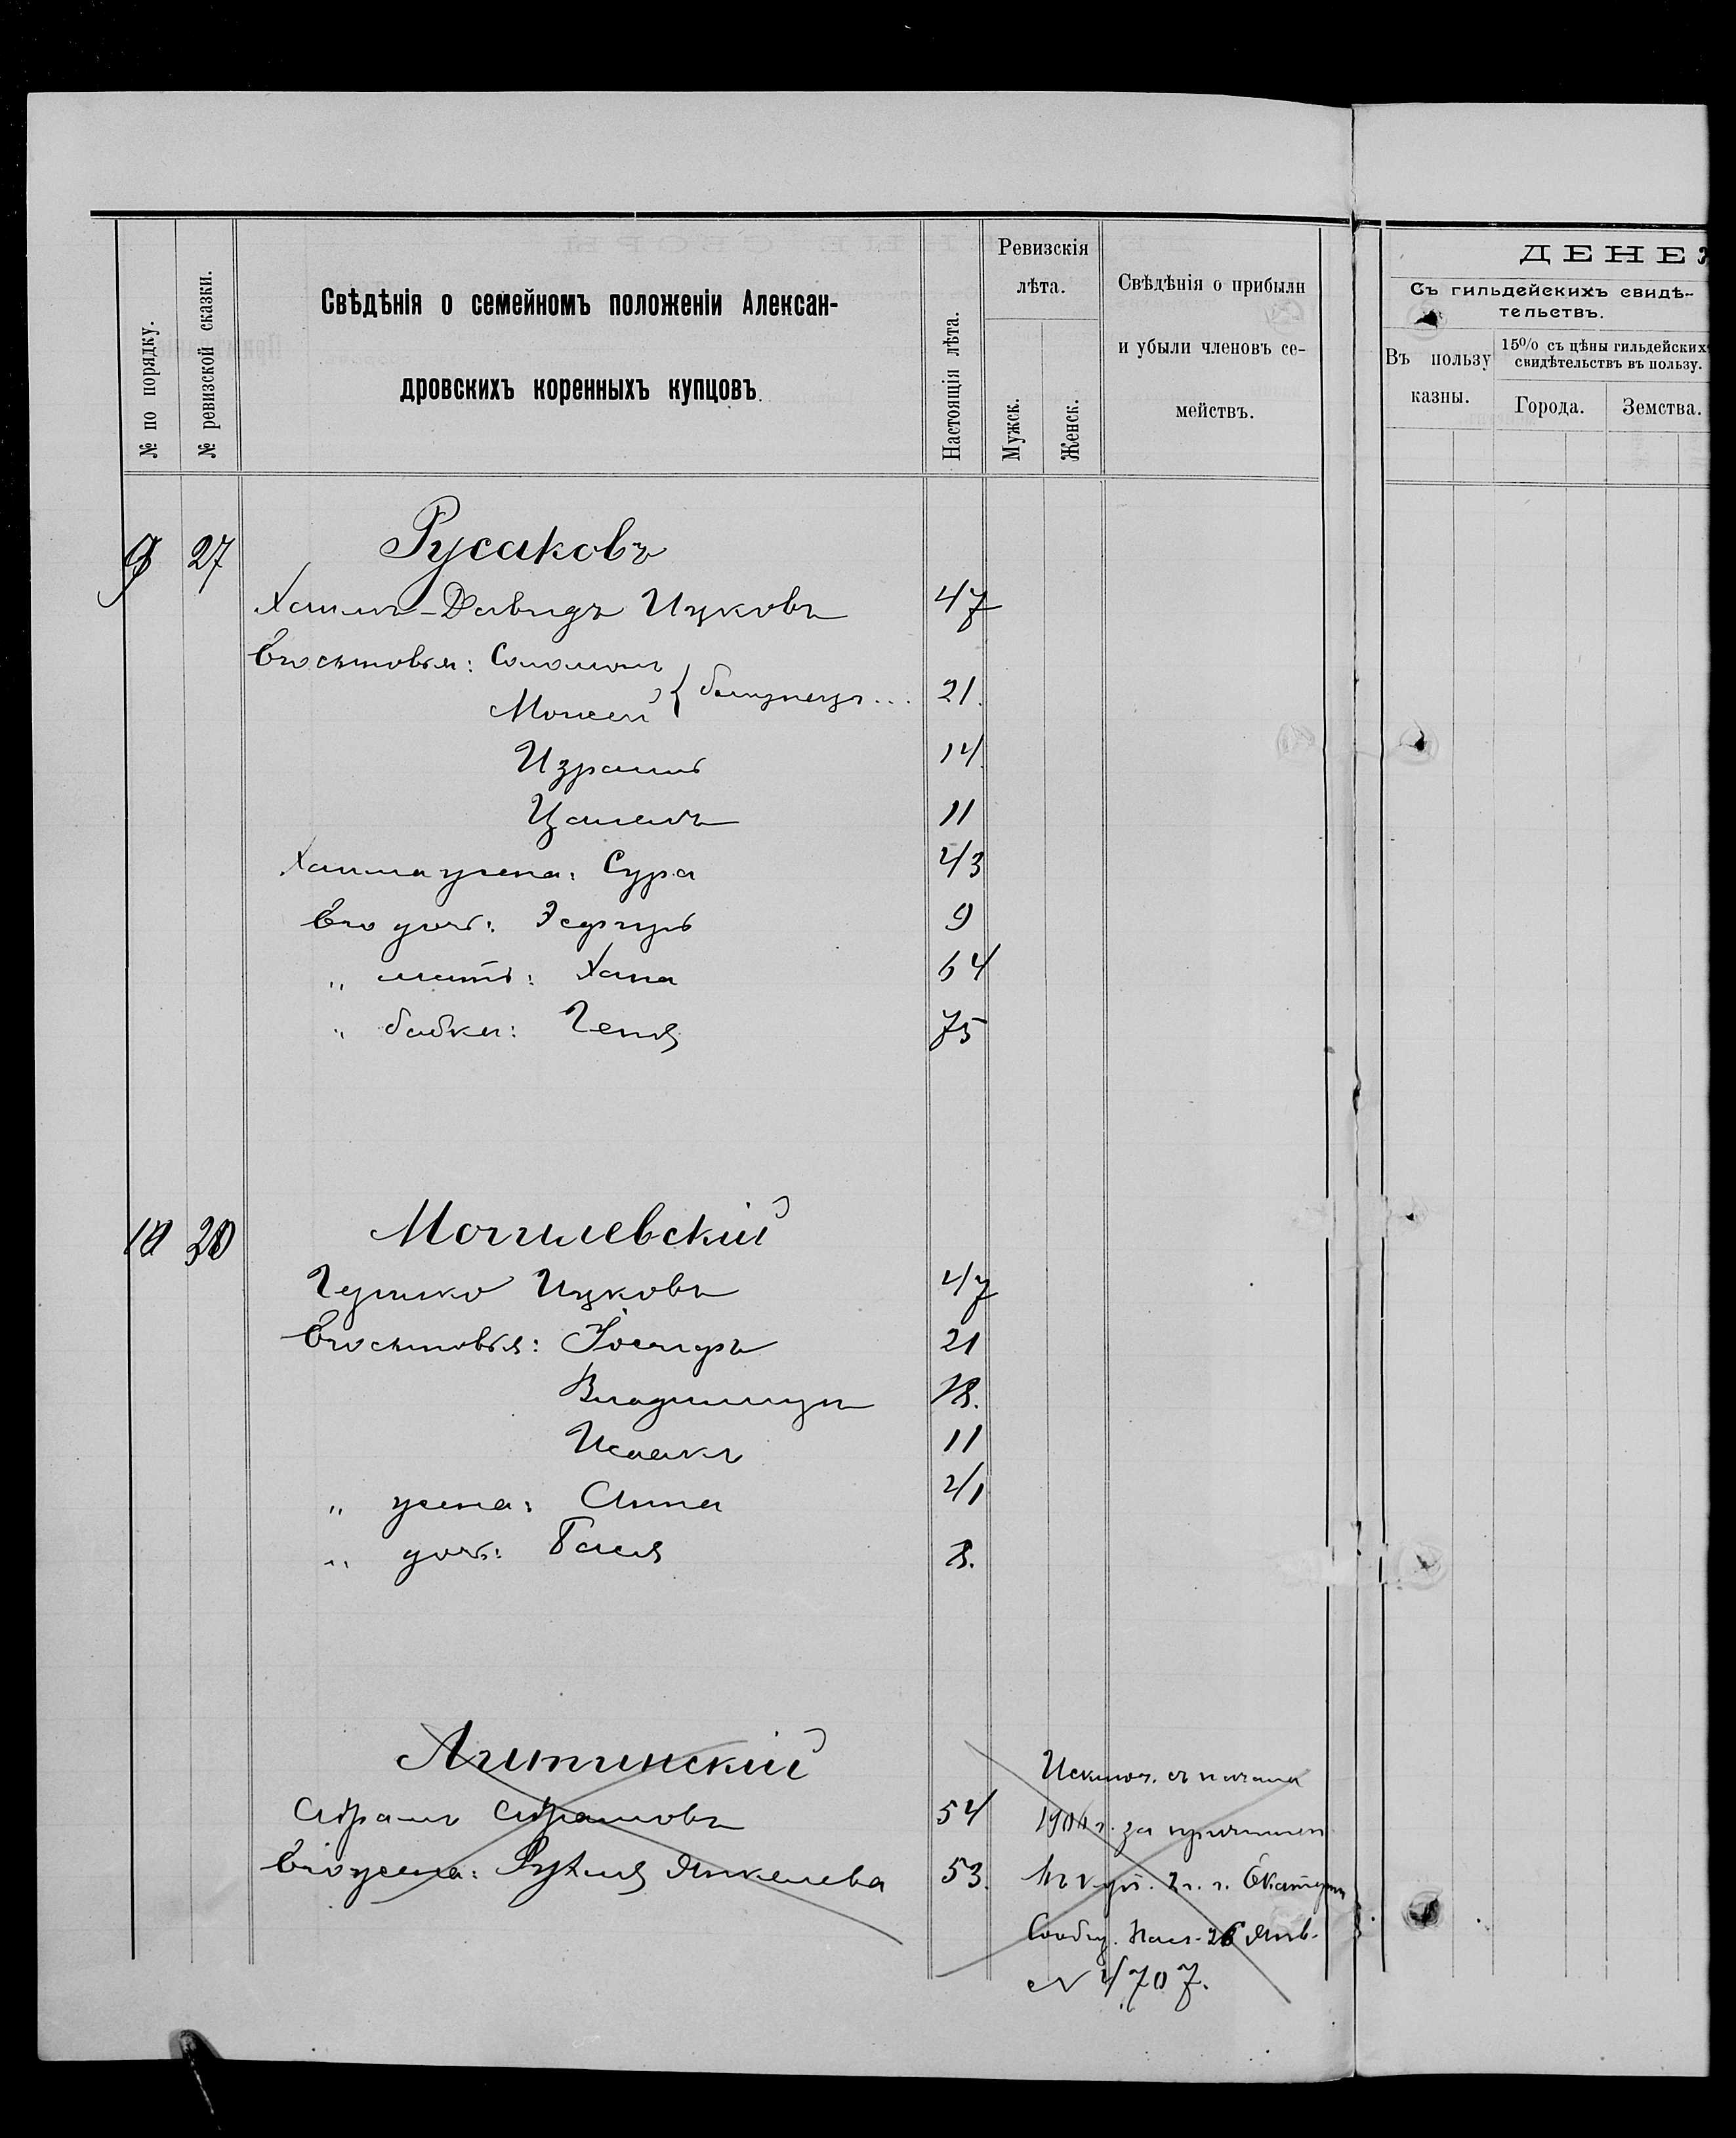 № по порядку.
№ ревизской сказки.
Свѣдѣнія о семейномъ положеніи Алексан-
дровскихъ коренныхъ купцовъ.
Настоящія лѣта.
Ревизскія
лѣта.
Мужск.
Женск.
Свѣдѣнія о прибыли
и убыли членовъ се-
мействъ.
ДЕНЕЖ
Съ гильдейскихъ свидѣ-
тельствъ.
Въ пользу
казны.
15% съ цѣны гильдейскихъ
свидѣтельствъ въ пользу.
Города.
Земства.
9 27 Русаковъ
Хаимъ-Давидъ Ицковъ 47
Его сыновья: Соломонъ
Моисей } близнецы... 21.
Израиль 14.
Цалелъ 11
Хаима жена: Сура 43
Его дочь: Эсфирь 9
„ мать: Хана 64
„ бабка: Геня 75
10 Могилевскій
Гершко Ицковъ 47
Его сыновья: Іосифъ 21
Владимиръ 18.
Исаакъ 11
„ жена: Анна 41
„ дочь: Бася 8.
Агитинскій
Абрамъ Абрамовъ 54
Его жена: Рухля Янкелева 53.
Исключ. съ начала
190 г. за причислен
Екатерин
Сообщ. 26 Янв.
№ 4707.